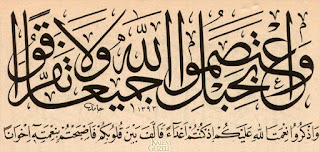 واعتصموا بحبل الله جميعا ولا تفرقوا
حامد ١٣٩٣
واذكروا نعمت الله عليكم اذ كنتم اعداء فالف بين قلوبكم فاصبحتم بنعمته اخوانا
KALEM GÜZELİ